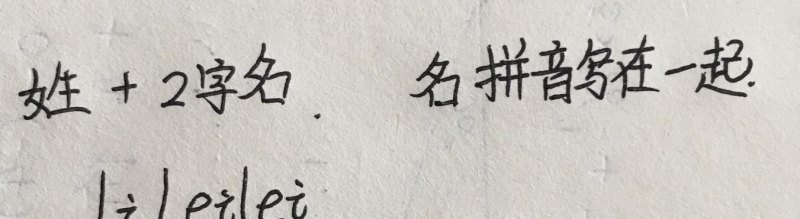 姓 + 2字名. 名拼音写在一起.
Li Leilei